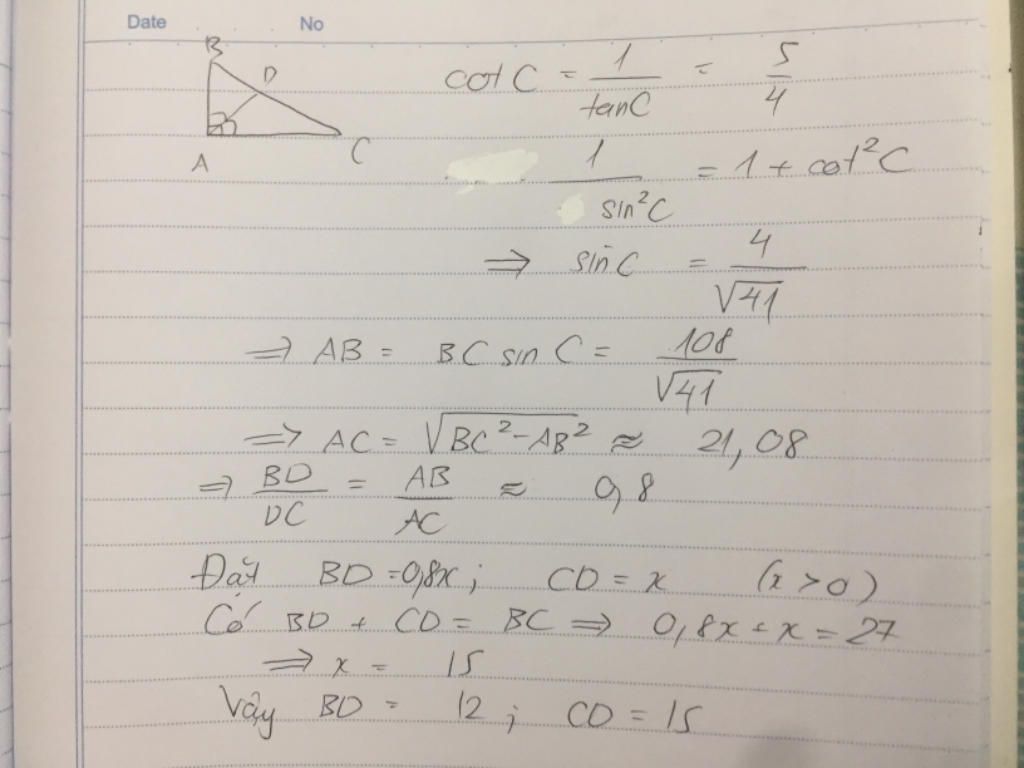 Date No
B
D
A C
cot C = 1/tanC = 5/4
1/sin²C = 1 + cot²C
⇒ sin C = 4/√41
⇒ AB = BC sin C = 108/√41
⇒ AC = √(BC² - AB²) ≈ 21,08
⇒ BD/DC = AB/AC ≈ 0,8
Đặt BD = 0,8x ; CD = x (x > 0)
Có BD + CD = BC ⇒ 0,8x + x = 27
⇒ x = 15
Vậy BD = 12 ; CD = 15